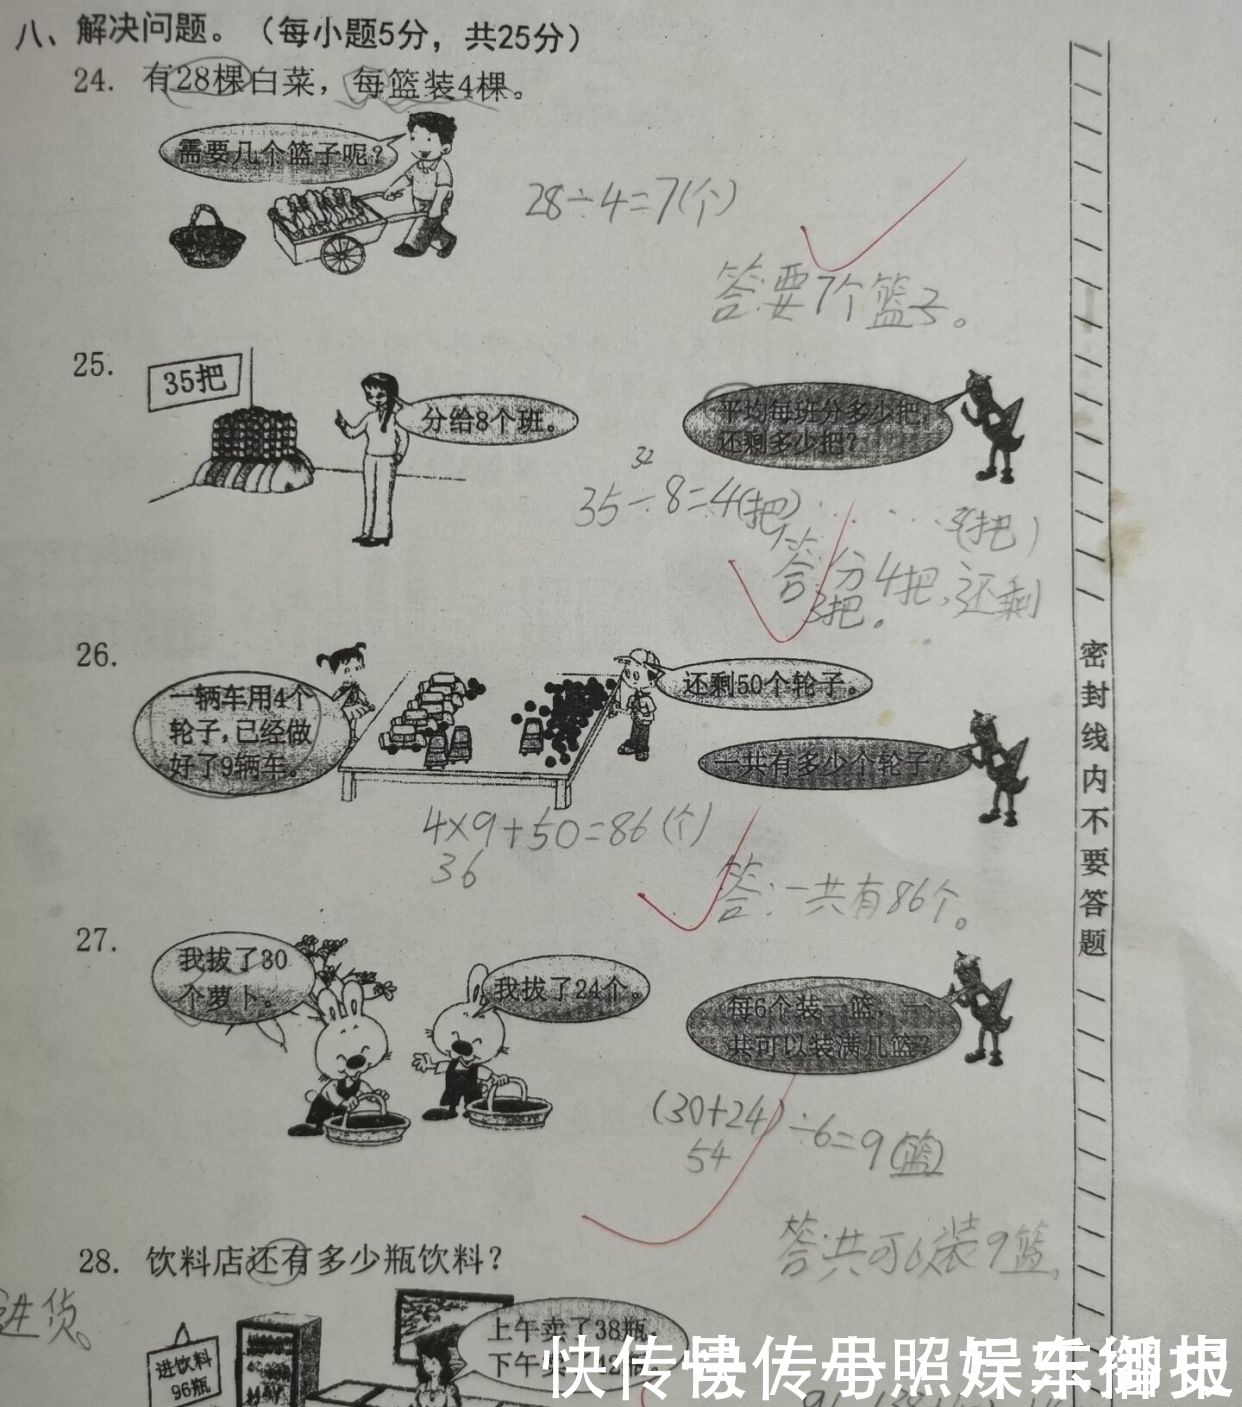 八、解决问题。（每小题5分，共25分）
24. 有28棵白菜，每篮装4棵。
需要几个篮子呢？
28÷4=7(个)
答:要7个篮子。
25.
35把
分给8个班。
平均每班分多少把，
还剩多少把？
32
35÷8=4(把)······3(把)
答:分4把,还剩
3把。
26.
一辆车用4个
轮子,已经做
好了9辆车。
还剩50个轮子。
一共有多少个轮子？
4×9+50=86(个)
36
答:一共有86个。
27.
我拔了30
个萝卜。
我拔了24个。
每6个装一篮，一
共可以装满几篮？
(30+24)÷6=9(篮)
54
答:共可以装9篮。
28. 饮料店还有多少瓶饮料？
进货。
进饮料
96瓶
上午卖了38瓶,
下午
密封线内不要答题
快传号